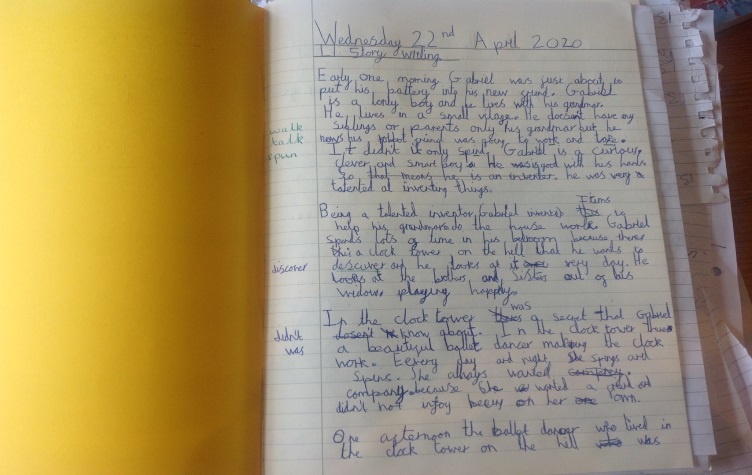 Wednesday 22nd April 2020
Story writing
Early one morning Gabriel was just about to
put his battery into his new friend. Gabriel
is a lonly boy and he lives with his grandmar.
He lives in a small village. He doesent have any
walk
siblings or parents only his grandmar but he
talk
his robbot friend was going to work and
spun
It didn't it only spun, Gabriel is a curious,
clever and smart boy. He is good with his hands.
So that means he is an inventer. he was very
talented at inventing things.
Items
Being a talented inventor, Gabriel invented to
help his grandmare do the house work. Gabriel
spends lots of time in his bedroom because theres
a clock tower on the hell that he wants to
discover
descuver and he looks at it very day. He
looks at the brothers and sisters out of his
window playing happely.
was
In the clock tower a secret that Gabriel
didn't
dosent know about. In the clock tower
was
a beautiful ballet dancer making the clock
work. Every day and night, she springs and
spins. She always wanted
company because she wanted a friend and
didn't not injoy being on her own.
One afternoon the ballet dancer who lived in
the clock tower on the hell was